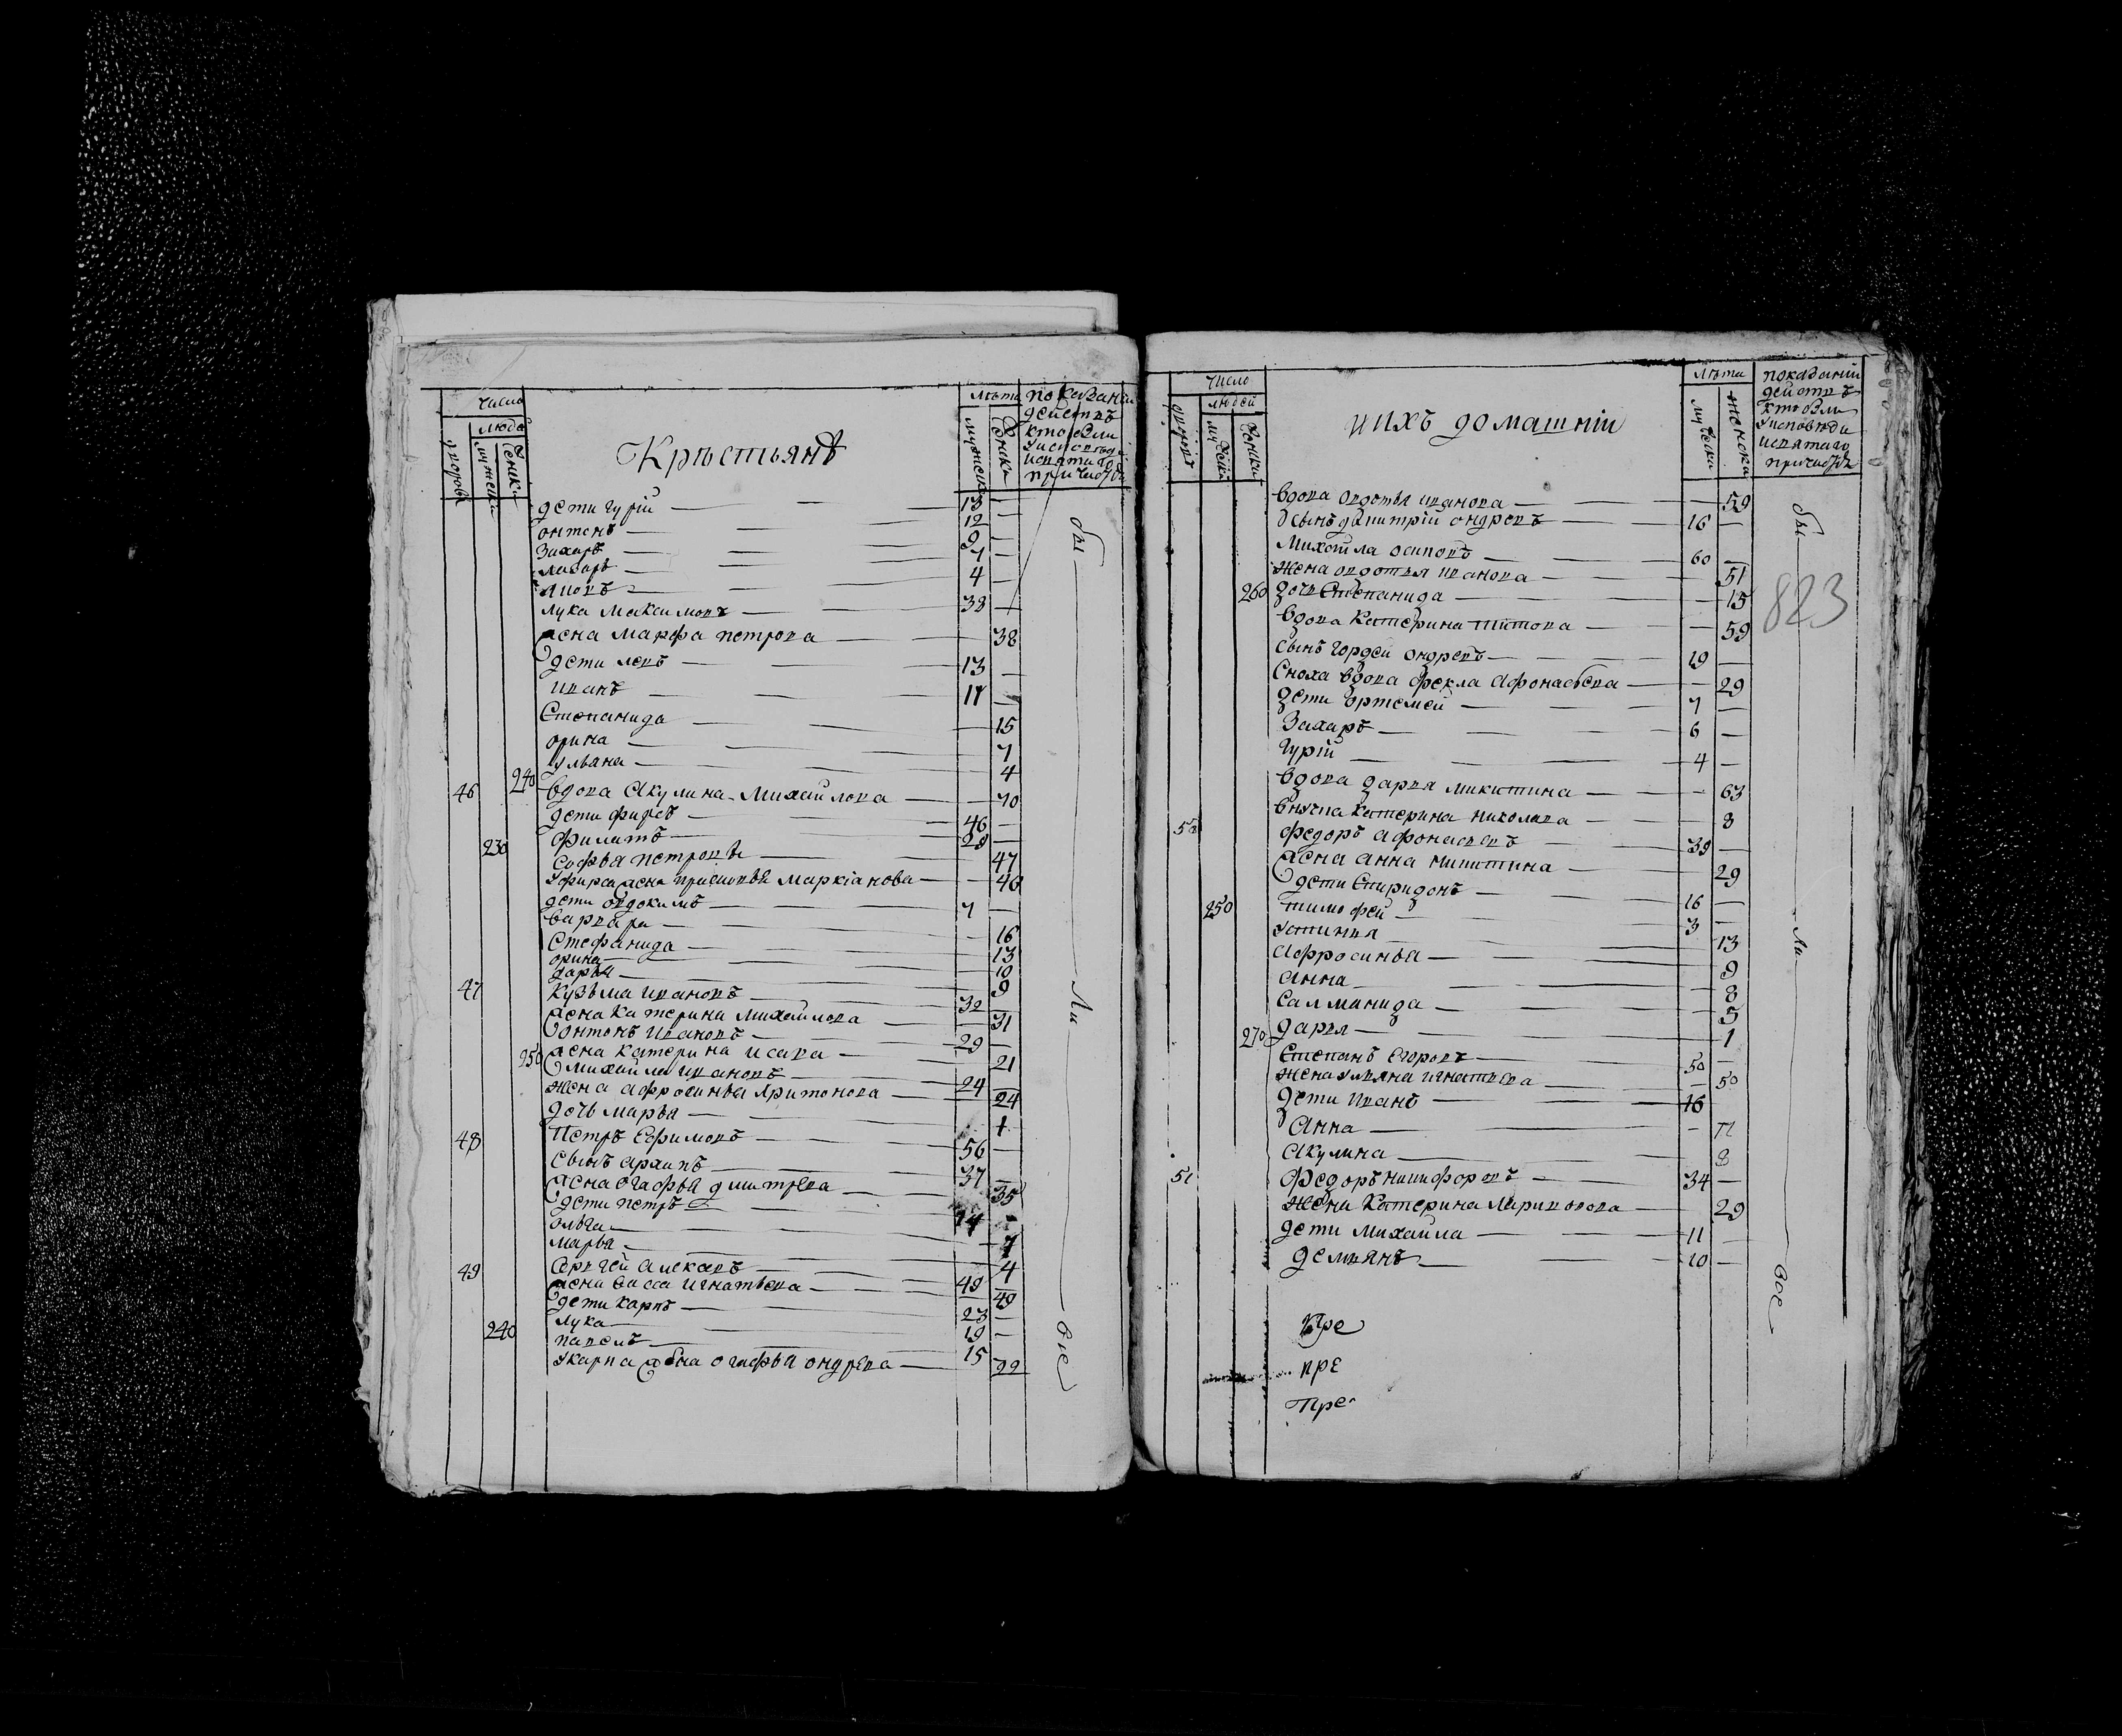 Число
людей
дворовъ
мужеска
женска
Крестьянъ
Лѣта
мужеска
женска
показаніи
действъ
кто были
у исповеди
и святаго
причастія
дети гурій — 13 —
онтонъ — 12 —
Захаръ — 9 —
лазарь — 7 —
4 —
лука Максимовъ — 38 —
жена марфа петрова — 38
дети левъ — 13 —
иванъ — 11 —
Степанида — 15
орина — 7
240 ульана — 4
46 вдова Акулина Михаилова — 70
дети фирсъ — 46 —
230 филатъ — 28 —
Софья петрова — 47
У фирса жена прасковья маркіанова — 46
дети овдокимъ — 7 —
варвара — 16
Стефанида — 13
орина — 10
дарья — 9
47 Кузьма ивановъ — 32
жена катерина михаилова — 31
онтонъ ивановъ — 29 —
250 жена катерина исаева — 21
михаила ивановъ — 24
жена афросинья харитонова — 24
дочь марья — 1
48 Петръ Ефимовъ — 56 —
сынъ архипъ — 37 —
жена огафья дмитрева — 35
дети петръ — 14 —
ольга — 7
марья — 4
49 Сергей алексевъ — 49 —
жена васса игнатьева — 49
дети карпъ — 23 —
лука — 19 —
240 павелъ — 15
у карпа жена огафья ондрева — 22
бы — ли — вси
Число
людей
дворовъ
мужеска
женска
ихъ домашніи
Лѣта
мужеска
женска
показаніи
действъ
кто были
у исповеди
и святаго
причастія
вдова овдотья иванова — 59
сынъ дмитрій ондревъ — 16 —
Михаила осиповъ — 60 —
жена овдотья иванова — 51
260 дочь Степанида — 15
823
вдова катерина титова — 59
сынъ гордей ондревъ — 19 —
Сноха вдова фекла афонасьева — 29
дети ортемей — 7 —
Захаръ — 6 —
гурій — 4 —
вдова дарья микитина — 63
внучка катерина николаева — 8
50 федоръ афонасьевъ — 39 —
жена анна никитина — 29
дети Спиридонъ — 16 —
250 тимофей — 3 —
устинья — 13
афросинья — 9
анна — 8
Саламанида — 5
270 дарья — 1
Степанъ Егоровъ — 50 —
жена ульяна игнатьева — 50
дети иванъ — 16
Анна — 11
акулина — 8
51 федоръ никифоровъ — 34 —
жена катерина ларионова — 29
дети михаила — 11 —
демьянъ — 10 —
бы — ли — вси
Пре
пре
Пре